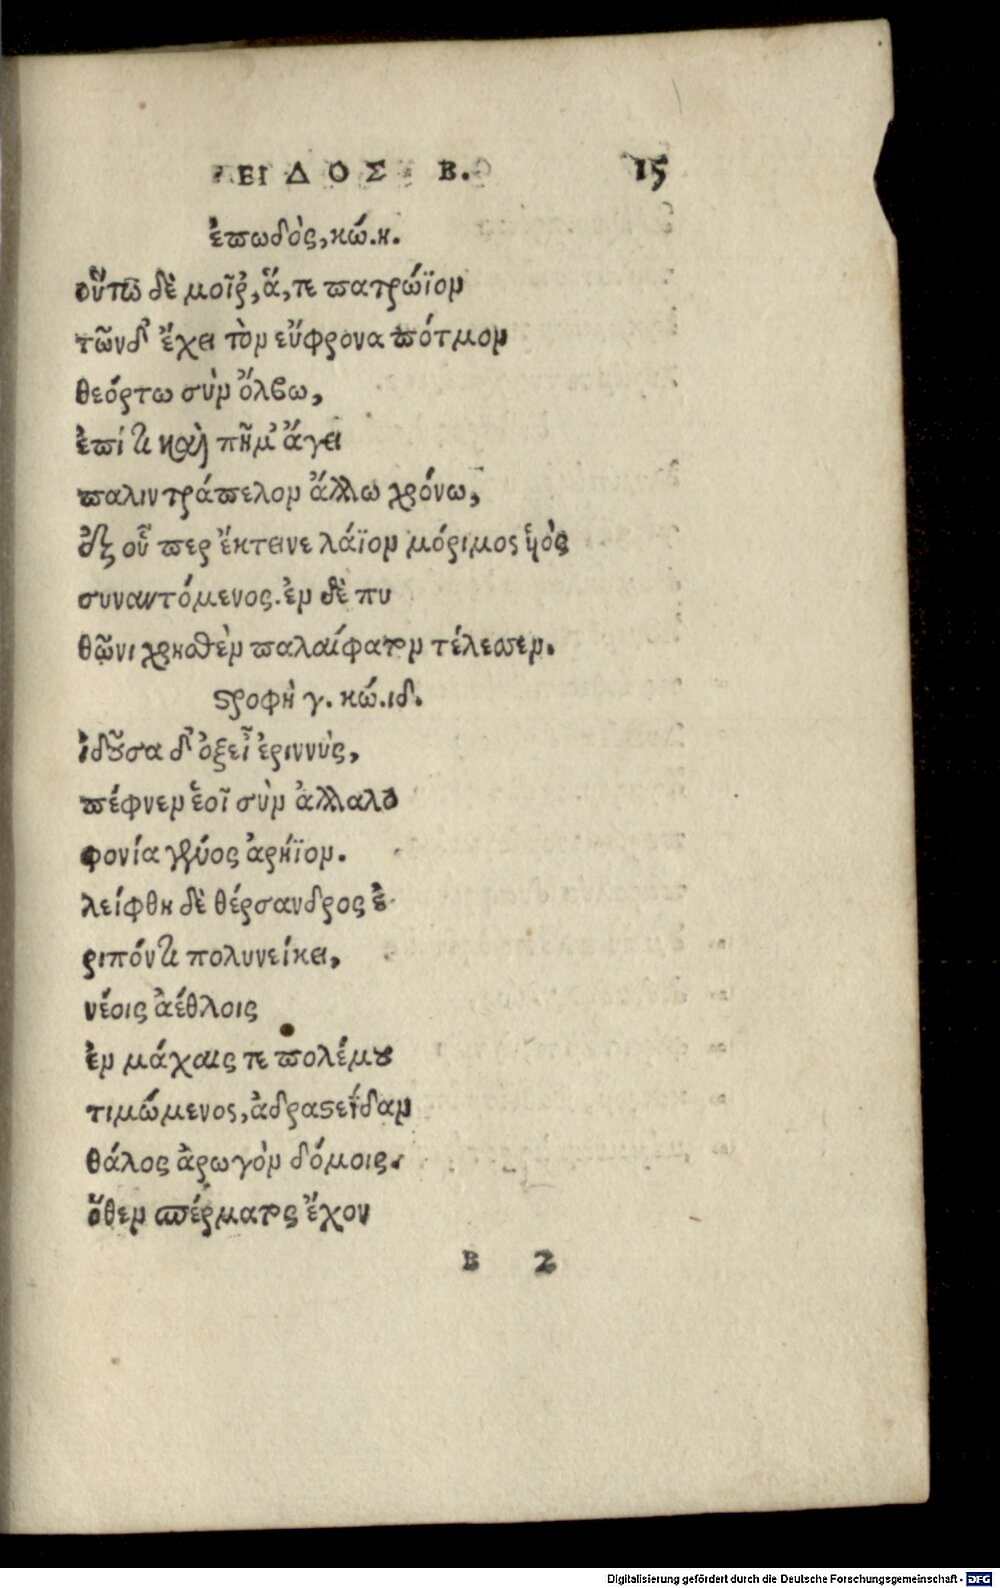 ΕΙΔΟΣ Β. 15
ἐπωδὸς, κώ.η.
οὕτω δὲ μοῖρ, ἅ, τε πατρώϊον
τῶνδ᾽ ἔχει τὸν εὔφρονα πότμον
θεόρτω σὺν ὄλβω,
ἐπί τι καὶ πῆμ᾽ ἄγει
παλιντράπελον ἄλλω χρόνω,
ἐξ οὗ περ ἔκτεινε λάϊον μόριμος ὑὸς
συναντόμενος. ἐν δὲ πυ
θῶνι χρησθὲν παλαίφατον τέλεσσεν.
στροφὴ γ. κώ.ιδ.
ἰδοῦσα δ᾽ ὀξεῖ᾽ ἐριννὺς,
πέφνεν ἑοῖ σὺν ἀλλαλο
φονία γένος ἀρήϊον.
λείφθη δὲ θέρσανδρος ἐ
ριπόντι πολυνείκει,
νέοις ἀέθλοις
ἐν μάχαις τε πολέμου
τιμώμενος, ἀδραστείδαν
θάλος ἀρωγὸν δόμοις.
ὅθεν σπέρματος ἔχον
Β 2
Digitalisierung gefördert durch die Deutsche Forschungsgemeinschaft - DFG